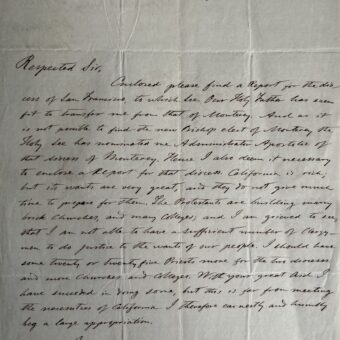 Respected Sir,
Enclosed please find a Report for the dio-
cess of San Francisco to which See Our Holy Father has seen
fit to transfer me from that of Monterey. And as it
is not possible to find the new Bishop elect of Monterey the
Holy See has nominated me Administrator Apostolic of
that diocess of Monterey. Hence I also deem it necessary
to enclose a Report for that diocess. California is rich,
but its wants are very great, and they do not give much
time to prepare for them. The Protestants are building many
brick Churches, and many Colleges, and I am grieved to say
that I am not able to have a sufficient number of Clergy-
men to do justice to the wants of our people. I should have
some twenty or twenty five Priests more for the two diocesses
and more Churches and Colleges. With your great aid I
have succeeded in doing some, but this is far from meeting
the necessities of California. I therefore earnestly and humbly
beg a large appropriation.